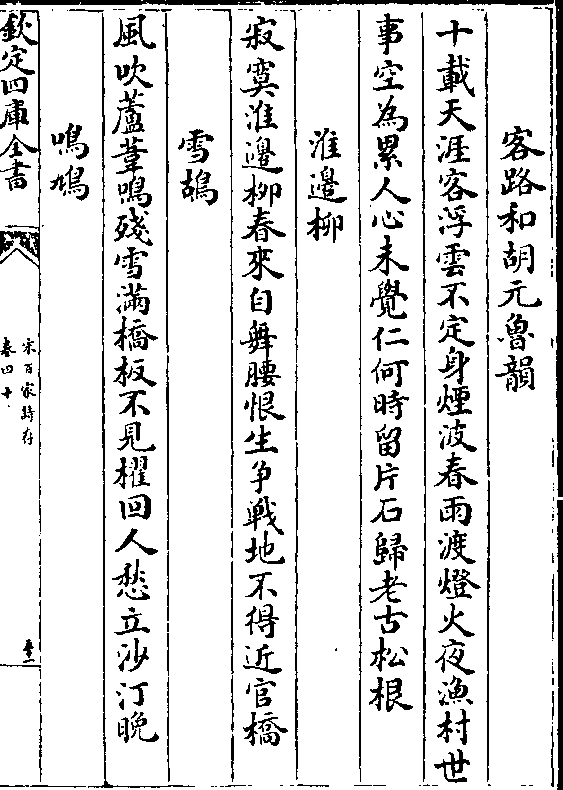 客路和胡元魯韻
十載天涯客浮雲不定身煙波春雨渡燈火夜漁村世
事空為累人心未覺仁何時留片石歸老古松根
淮邊柳
寂寞淮邊柳春來自舞腰恨生争戰地不得近官橋
雪鴣
風吹蘆葦鳴殘雪滿橋板不見櫂回人愁立沙汀晚
鳴鳩
欽定四庫全書
宋百家詩存
卷四十